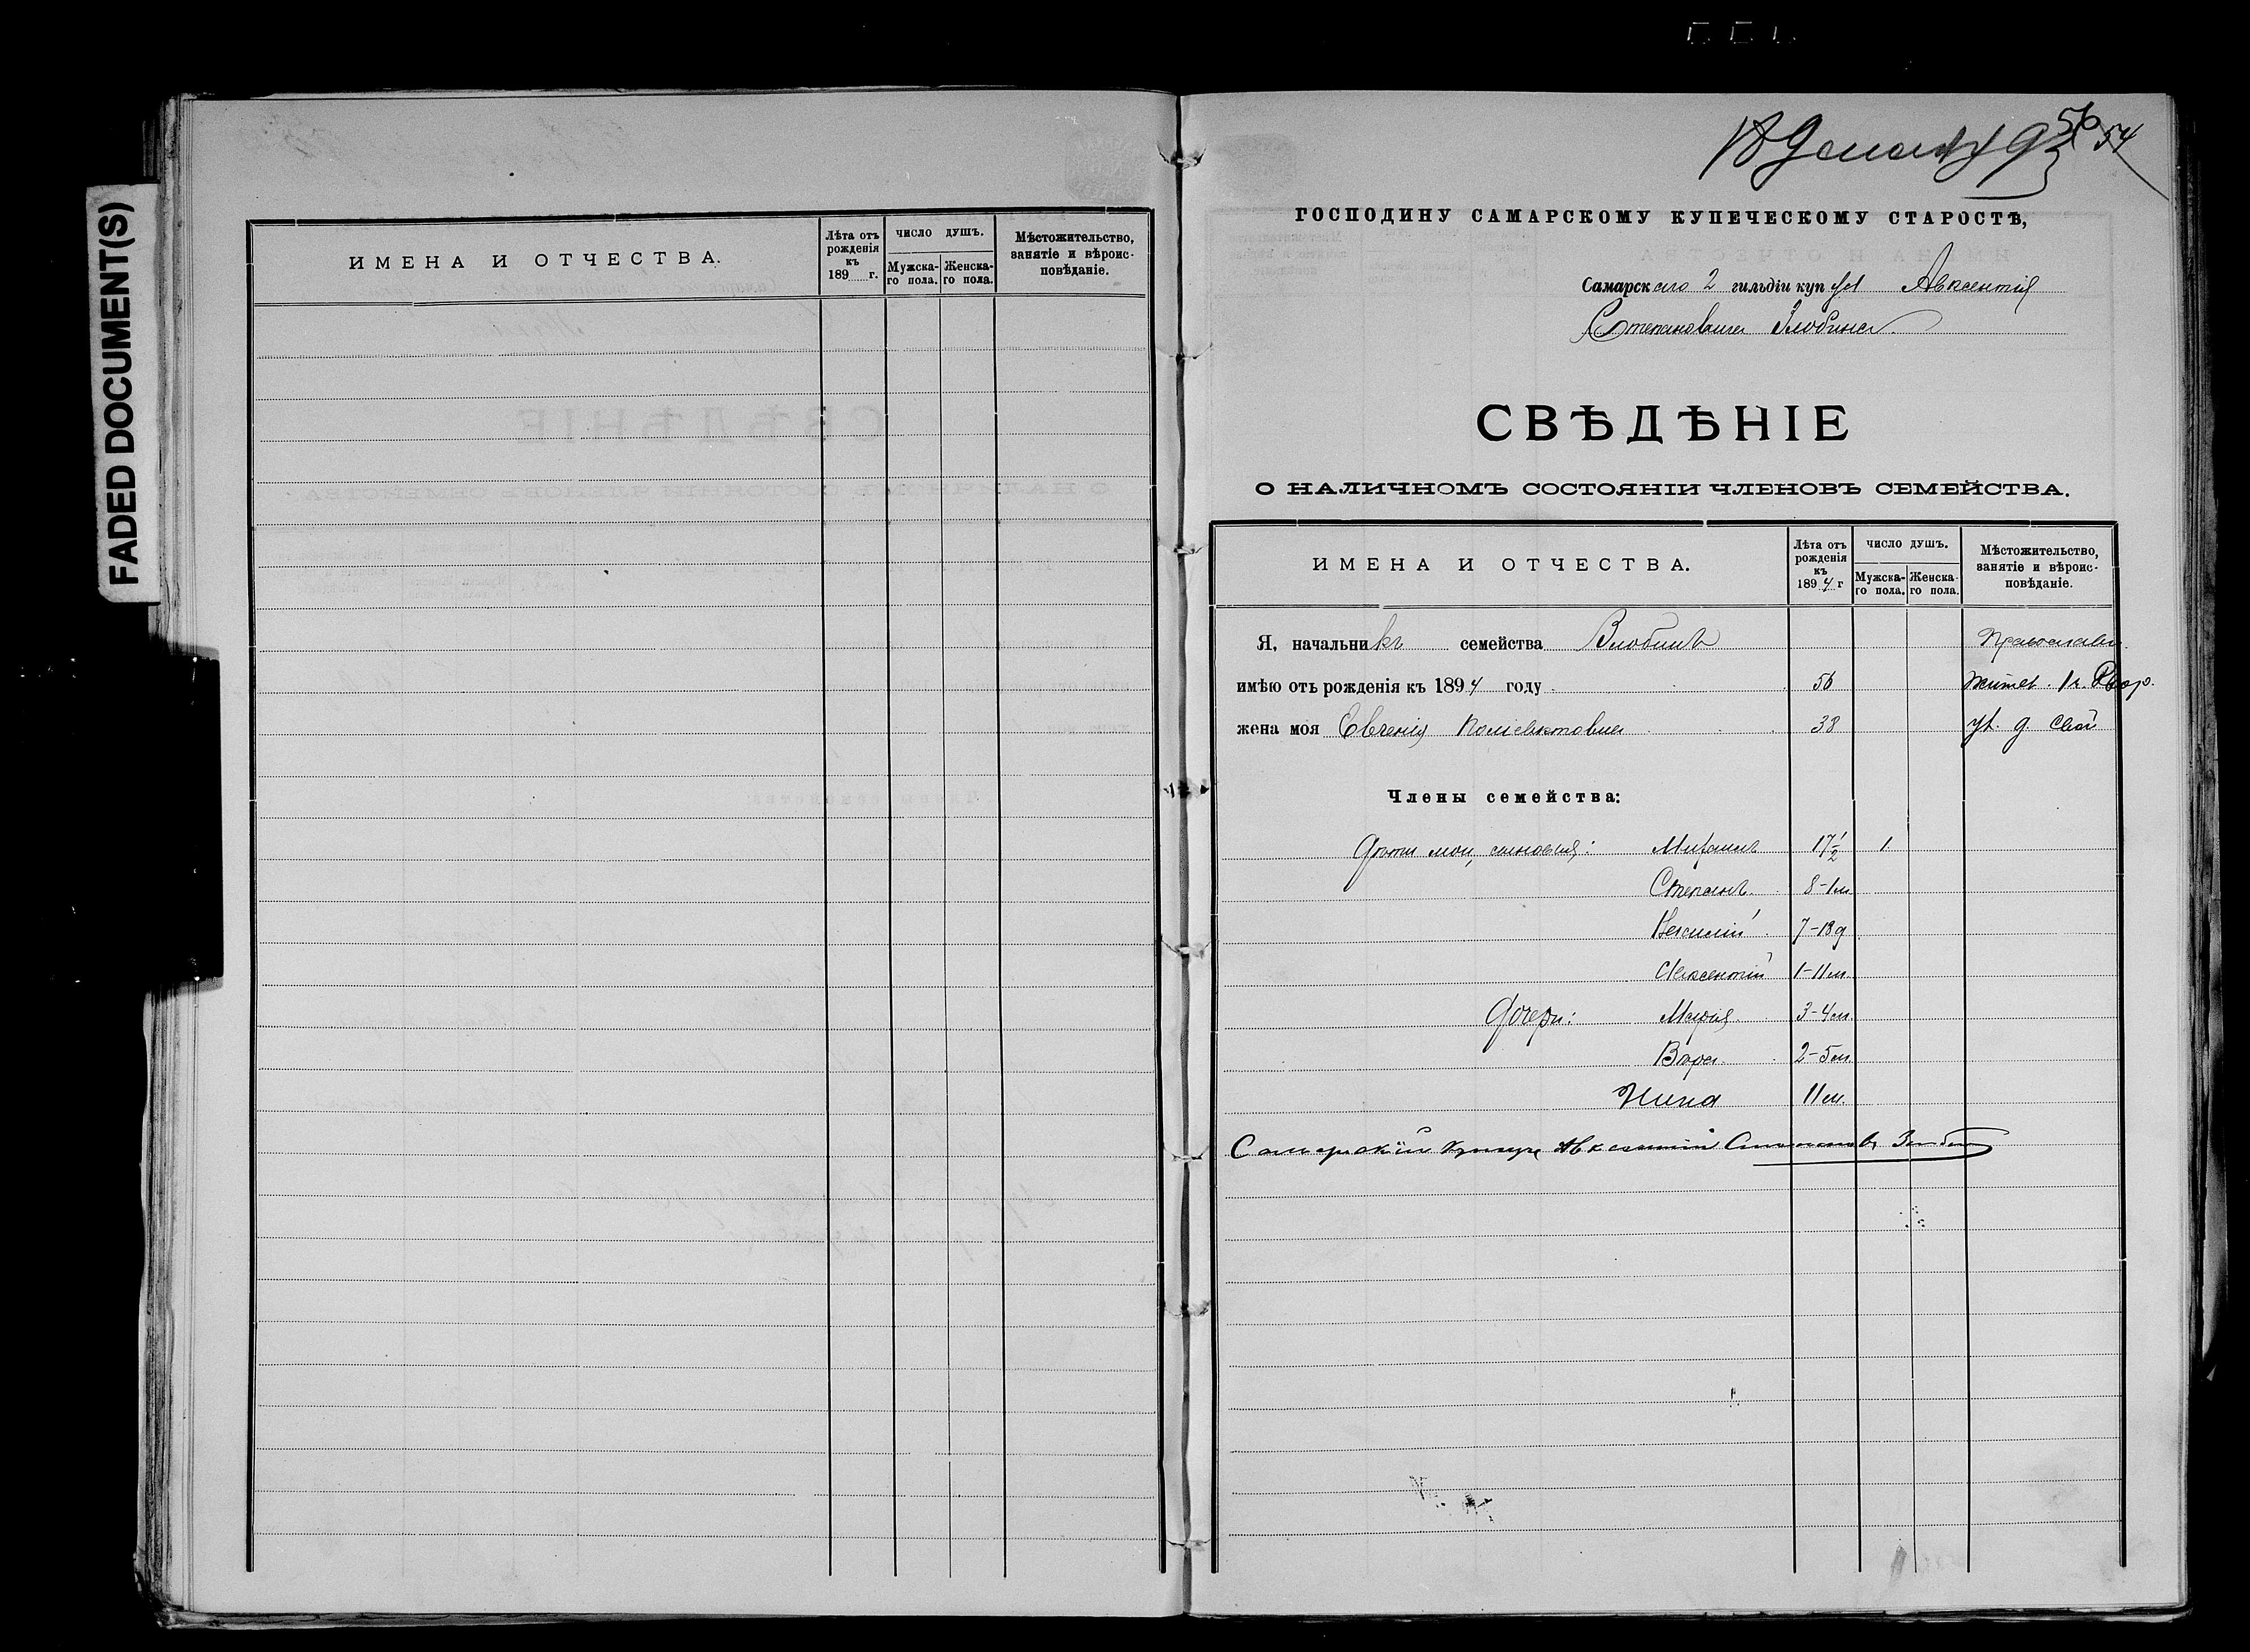 FADED DOCUMENT(S)
ИМЕНА И ОТЧЕСТВА.
Лѣта отъ рожденія къ 189 г.
ЧИСЛО ДУШЪ.
Мужска-го пола.
Женска-го пола.
Мѣстожительство, занятіе и вѣроис-повѣданіе.
93 56 54
ГОСПОДИНУ САМАРСКОМУ КУПЕЧЕСКОМУ СТАРОСТѢ,
Самарскаго 2 гильдіи купца Авксентія
Степановича Злобина
СВѢДѢНІЕ
О НАЛИЧНОМЪ СОСТОЯНІИ ЧЛЕНОВЪ СЕМЕЙСТВА.
ИМЕНА И ОТЧЕСТВА.
Лѣта отъ рожденія къ 1894 г
ЧИСЛО ДУШЪ.
Мужска-го пола.
Женска-го пола.
Мѣстожительство, занятіе и вѣроис-повѣданіе.
Я, начальникъ семейства Злобинъ Православн.
имѣю отъ рожденія къ 1894 году 56 жител. 1 ч. Двор.
жена моя Евгенія Поліевктовна 38 ул. д. свой
Члены семейства:
Дѣти мои, сыновья: 17 1/2 1
Степанъ 8-1 м.
Василій 7-18 д
Авксентій 1-11 м.
Дочери: Марія 3-4 м.
Вѣра 2-5 м.
Нина 11 м.
Самарскій Купецъ Авксентій Степановъ Злобин